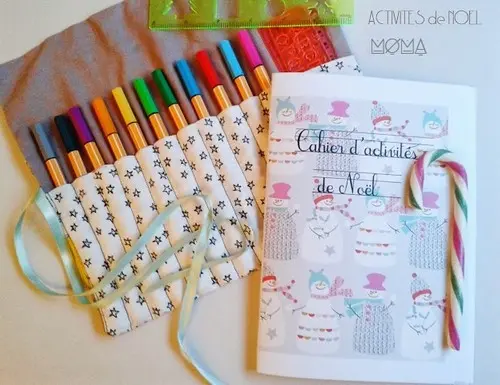 ACTIVITES de NOEL
MØMA
Cahier d'activités
de Noël